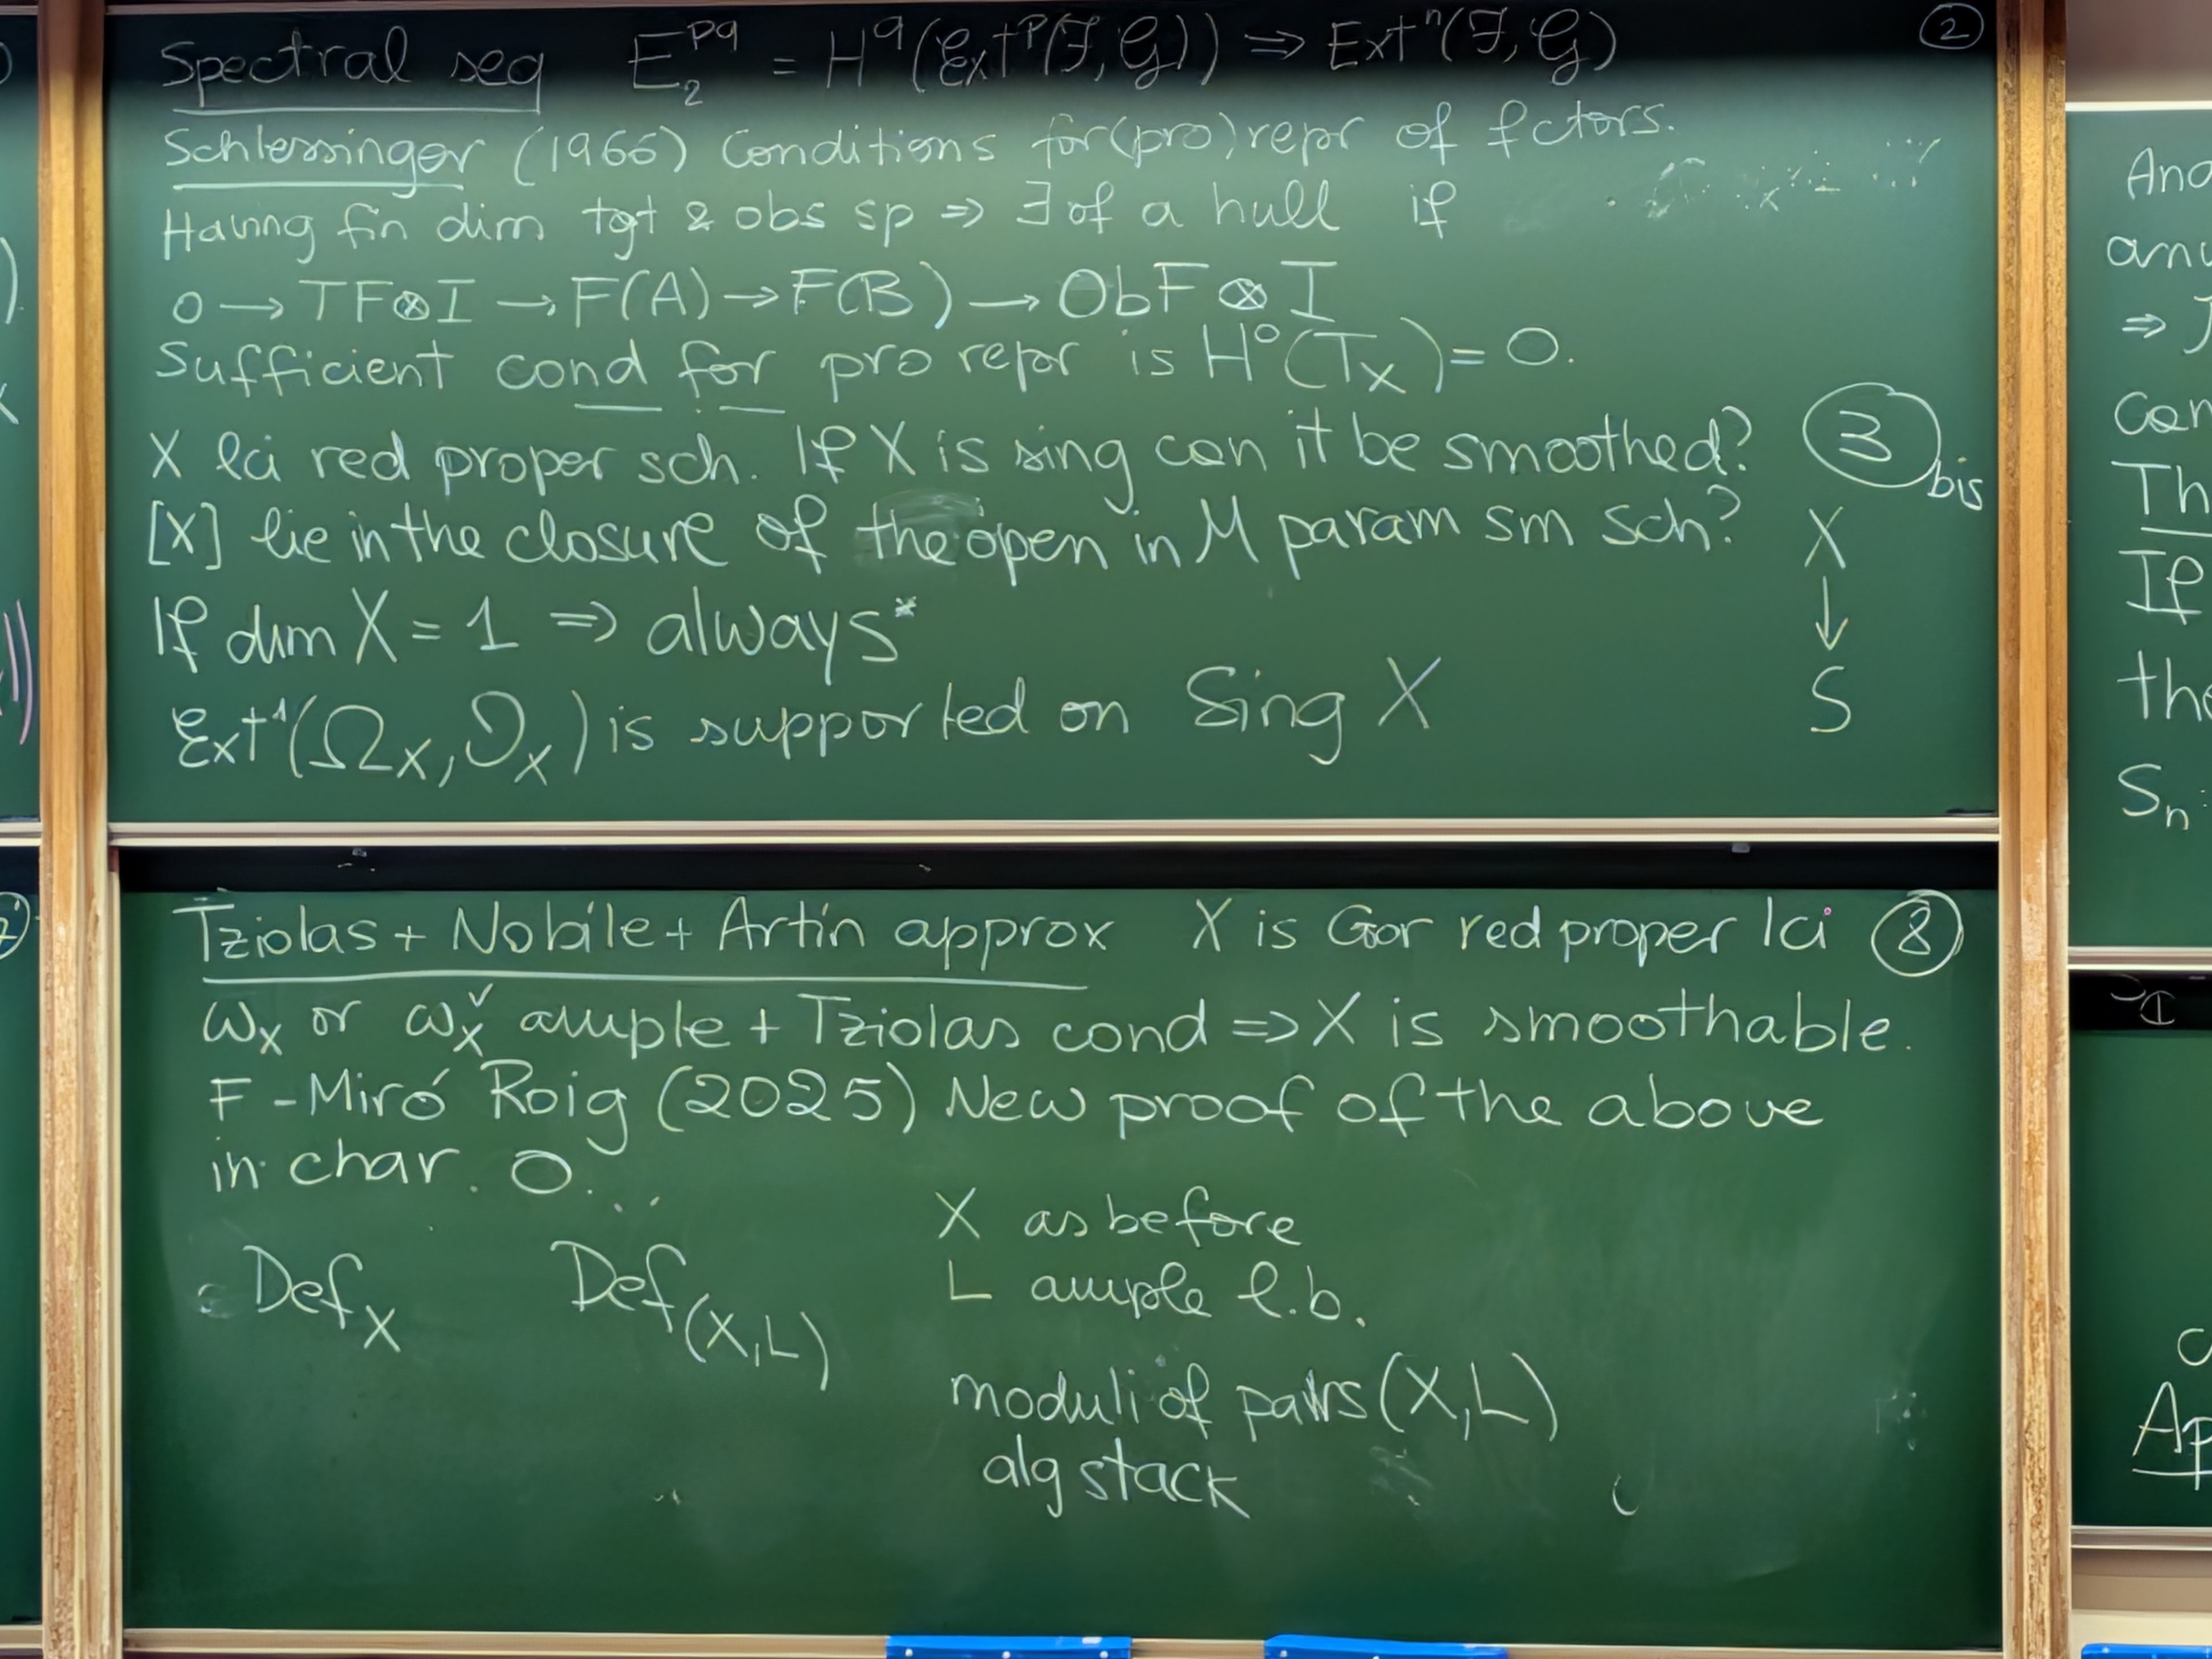 Spectral seq E₂^{pq} = H^q(Ext^p(F,G)) ⇒ Ext^n(F,G) ②
Schlessinger (1966) Conditions for (pro)repr of fctors.
Having fin dim tgt & obs sp ⇒ ∃ of a hull if
0 → TF⊗I → F(A) → F(B) → ObF⊗I
Sufficient cond for pro repr is H⁰(T_X) = 0.
X lci red proper sch. If X is sing can it be smoothed? ③ bis
[X] lie in the closure of the open in M param sm sch?
If dim X = 1 ⇒ always*
Ext¹(Ω_X, O_X) is supported on Sing X
X
↓
S
Tziolas + Nobile + Artin approx X is Gor red proper lci ⑧
ω_X or ω_X^∨ ample + Tziolas cond ⇒ X is smoothable.
F - Miró Roig (2025) New proof of the above
in char. 0.
Def_X Def_(X,L)
X as before
L ample l.b.
moduli of pairs (X,L)
alg stack
If
S_n